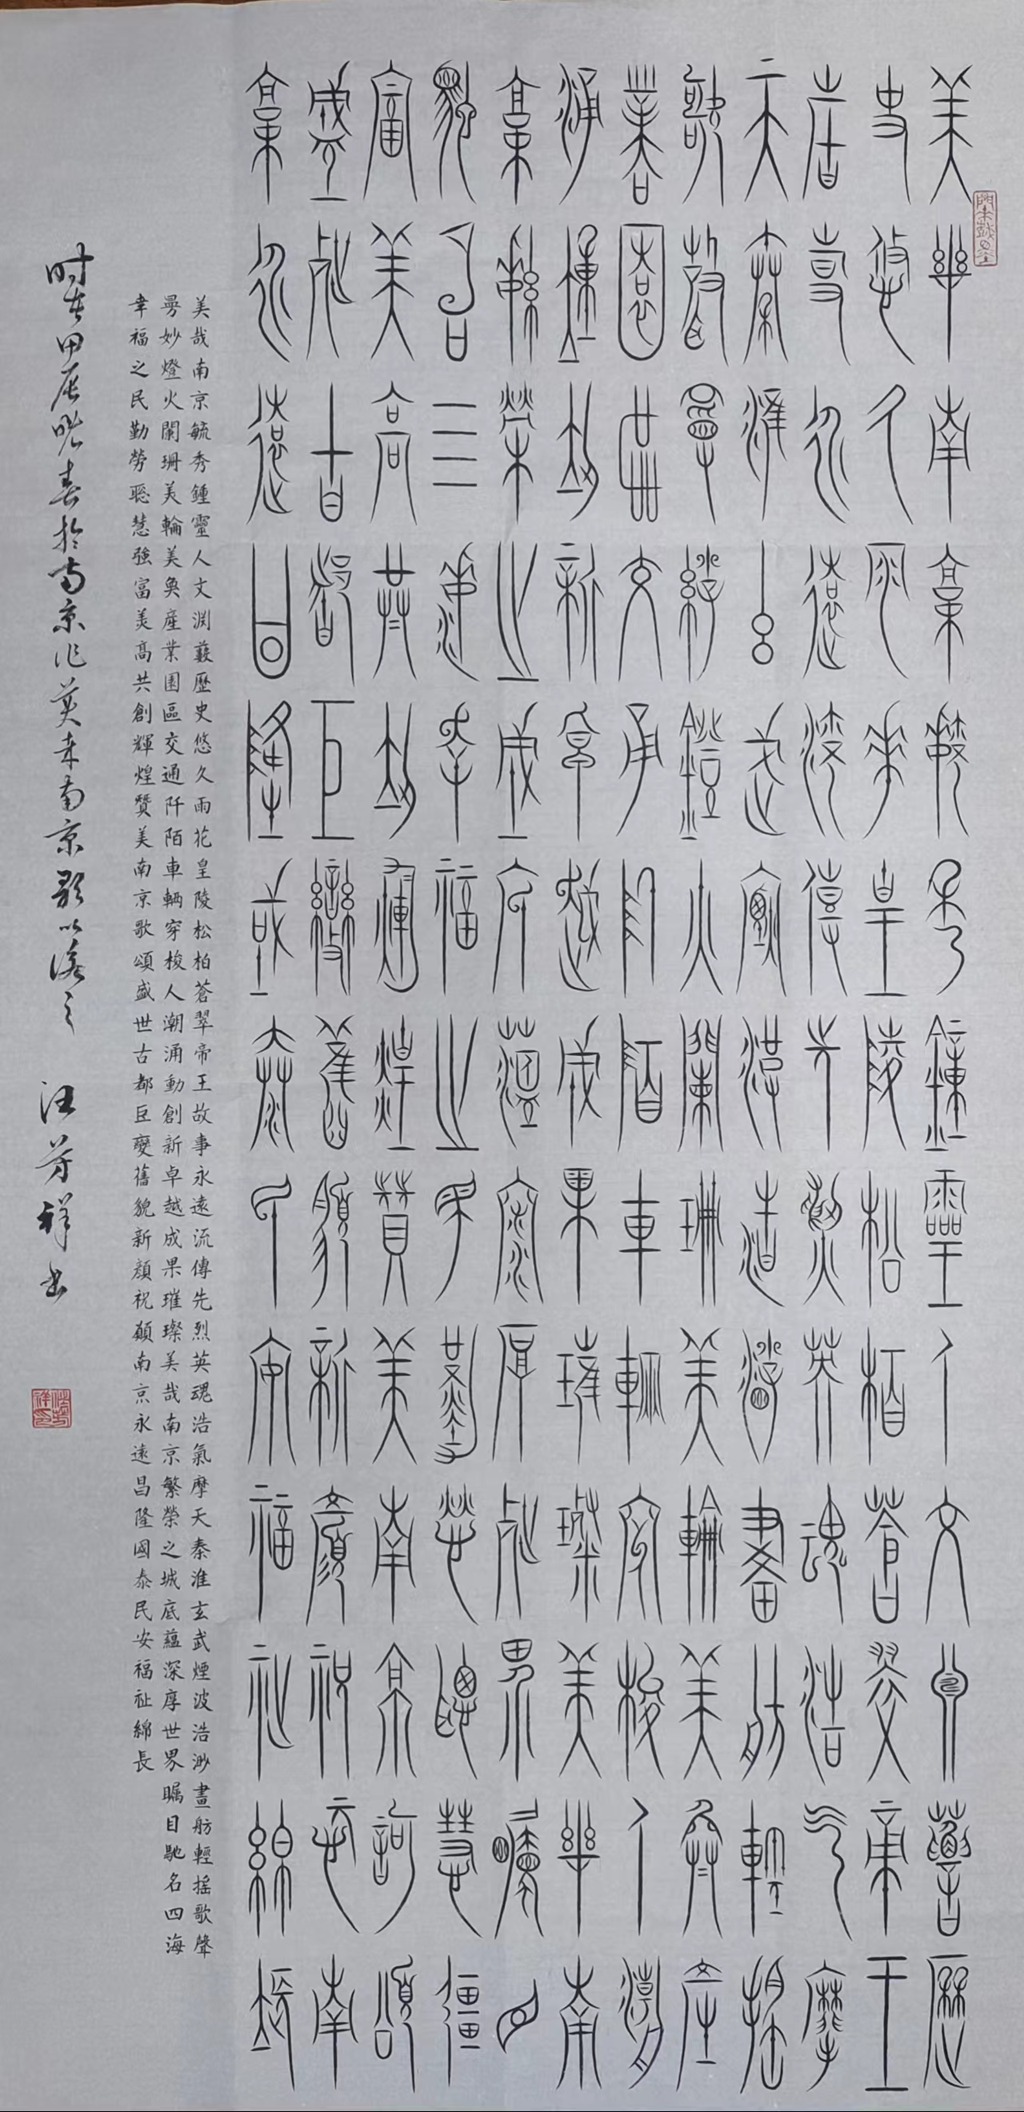 美哉南京毓秀鍾靈人文淵藪歷
史悠久雨花皇陵松柏蒼翠帝王
故事永遠流傳先烈英魂浩氣摩
天秦淮玄武煙波浩渺畫舫輕搖
歌聲曼妙燈火闌珊美輪美奐產
業園區交通阡陌車輛穿梭人潮
涌動創新卓越成果璀璨美哉南
京繁榮之城底蘊深厚世界矚目
馳名四海幸福之民勤勞聰慧強
富美高共創輝煌贊美南京歌頌
盛世古都巨變舊貌新顏祝願南
京永遠昌隆國泰民安福祉綿長
美哉南京毓秀鍾靈人文淵藪歷史悠久雨花皇陵松柏蒼翠帝王故事永遠流傳先烈英魂浩氣摩天秦淮玄武煙波浩渺畫舫輕搖歌聲
曼妙燈火闌珊美輪美奐產業園區交通阡陌車輛穿梭人潮涌動創新卓越成果璀璨美哉南京繁榮之城底蘊深厚世界矚目馳名四海
幸福之民勤勞聰慧強富美高共創輝煌贊美南京歌頌盛世古都巨變舊貌新顏祝願南京永遠昌隆國泰民安福祉綿長
時在甲辰晚春於南京作美哉南京歌以詠之 汪芳祥書